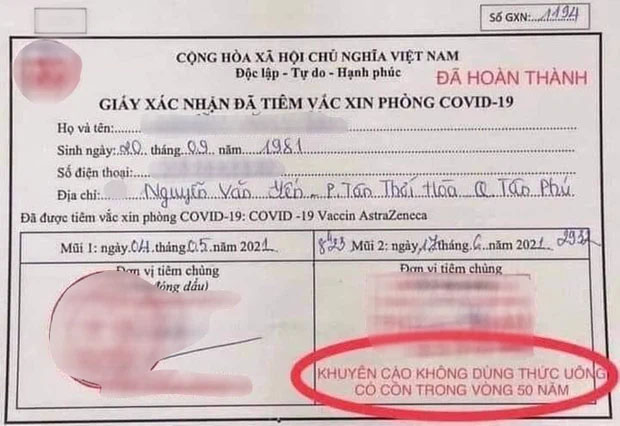 Số GXN: 1194
CỘNG HÒA XÃ HỘI CHỦ NGHĨA VIỆT NAM
Độc lập - Tự do - Hạnh phúc
ĐÃ HOÀN THÀNH
GIẤY XÁC NHẬN ĐÃ TIÊM VẮC XIN PHÒNG COVID-19
Họ và tên:
Sinh ngày: 20 tháng 09 năm 1981
Số điện thoại:
Địa chỉ: Nguyễn Văn Yến - P. Tân Thới Hòa Q. Tân Phú
Đã được tiêm vắc xin phòng COVID-19: COVID -19 Vaccin AstraZeneca
Mũi 1: ngày 04 tháng 05 năm 2021 8h23 Mũi 2: ngày 17 tháng 6 năm 2021
Đơn vị tiêm chủng Đơn vị tiêm chủng
đóng dấu)
KHUYẾN CÁO KHÔNG DÙNG THỨC UỐNG
CÓ CỒN TRONG VÒNG 50 NĂM